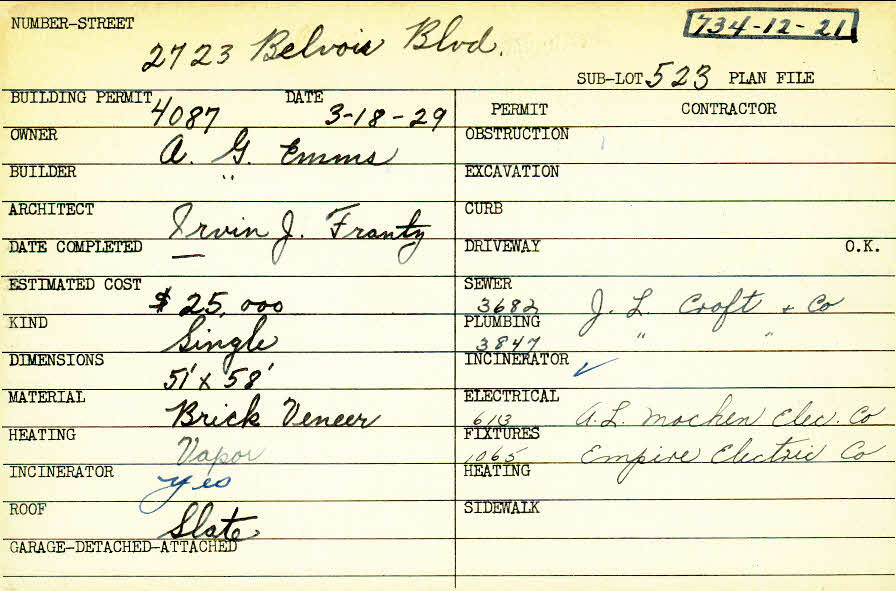 NUMBER-STREET
734-12-21
2723 Belvoir Blvd.
SUB-LOT 523 PLAN FILE
BUILDING PERMIT 4087 DATE 3-18-29
OWNER A. G. Emms
BUILDER "
ARCHITECT Irvin J. Franty
DATE COMPLETED —
ESTIMATED COST $ 25,000
KIND Single
DIMENSIONS 51' x 58'
MATERIAL Brick Veneer
HEATING Vapor
INCINERATOR yes
ROOF Slate
GARAGE-DETACHED-ATTACHED
PERMIT CONTRACTOR
OBSTRUCTION
EXCAVATION
CURB
DRIVEWAY O.K.
SEWER 3682 J. L. Croft + Co
PLUMBING 3847 " "
INCINERATOR ✓
ELECTRICAL 6113 A.L. Mochen Elec. Co
FIXTURES 1065 Empire Electric Co
HEATING
SIDEWALK